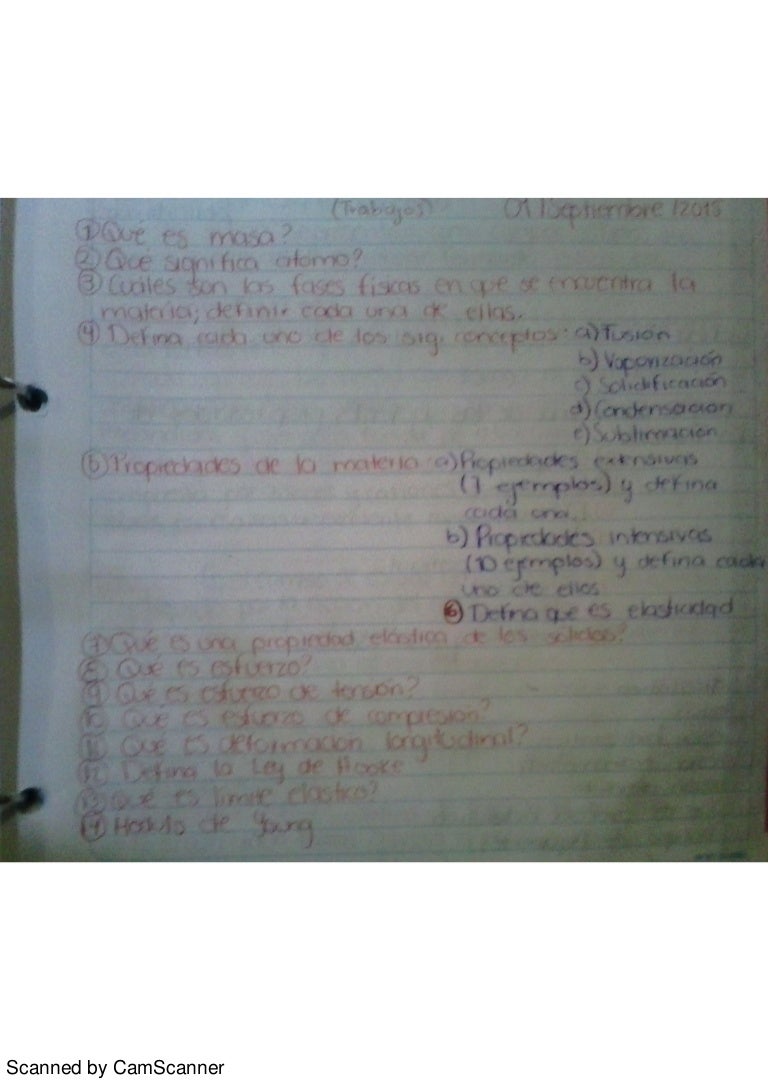 (Trabajos) 01/Septiembre/2015
① Qué es masa?
② Que significa atomo?
③ Cuáles son las fases físicas en que se encuentra la
materia; definir cada una de ellas.
④ Defina cada uno de los sig. conceptos: a) Fusión
b) Vaporización
c) Solidificación
d) Condensación
e) Sublimación
⑤ Propiedades de la materia a) Propiedades extensivas
(7 ejemplos) y defina
cada una.
b) Propiedades intensivas
(10 ejemplos) y defina cada
uno de ellos
⑥ Defina que es elasticidad
⑦ Qué es una propiedad elástica de los solidos?
⑧ Que es esfuerzo?
⑨ Que es esfuerzo de tensión?
⑩ Que es esfuerzo de compresión?
⑪ Que es deformación longitudinal?
⑫ Defina la Ley de Hooke
⑬ Qué es limite elastico?
⑭ Modulo de Young
Scanned by CamScanner